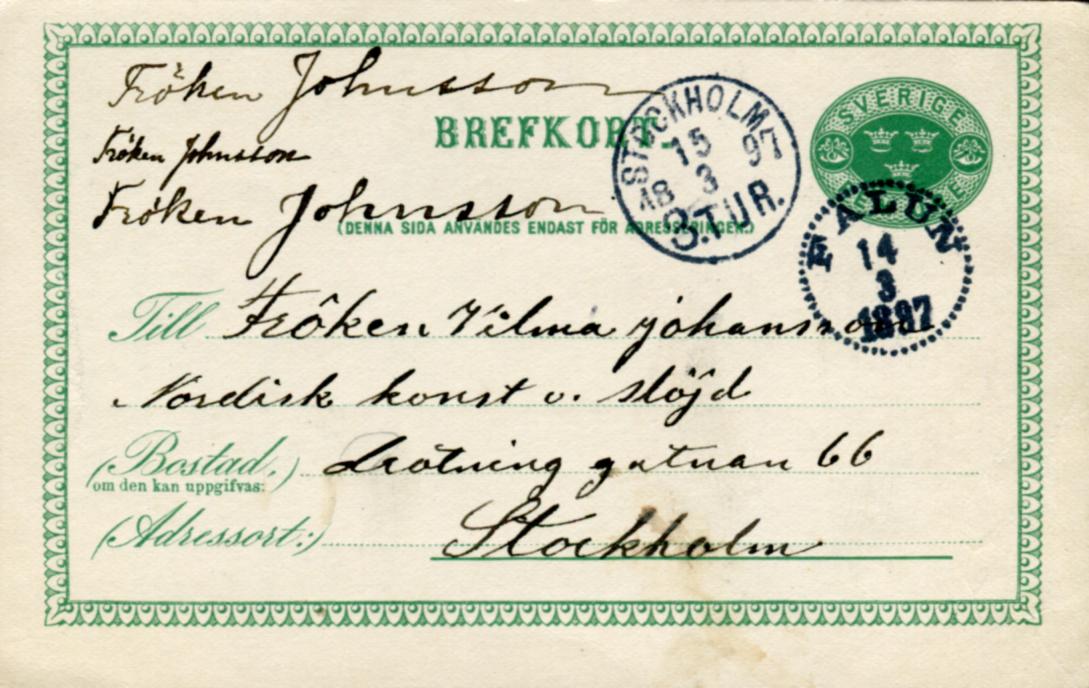 Fröken Johnsson
Fröken Johnsson
Fröken Johnsson
BREFKORT.
(DENNA SIDA ANVÄNDES ENDAST FÖR ADRESSERINGEN.)
STOCKHOLM 7
15
18 3 97
3.TUR.
SVERIGE
FALUN
14
3
1897
Till Fröken Vilma johansson
Nordisk konst o. slöjd
(Bostad,) Drötning gatuan 66
om den kan uppgifvas:
(Adressort:) Stockholm